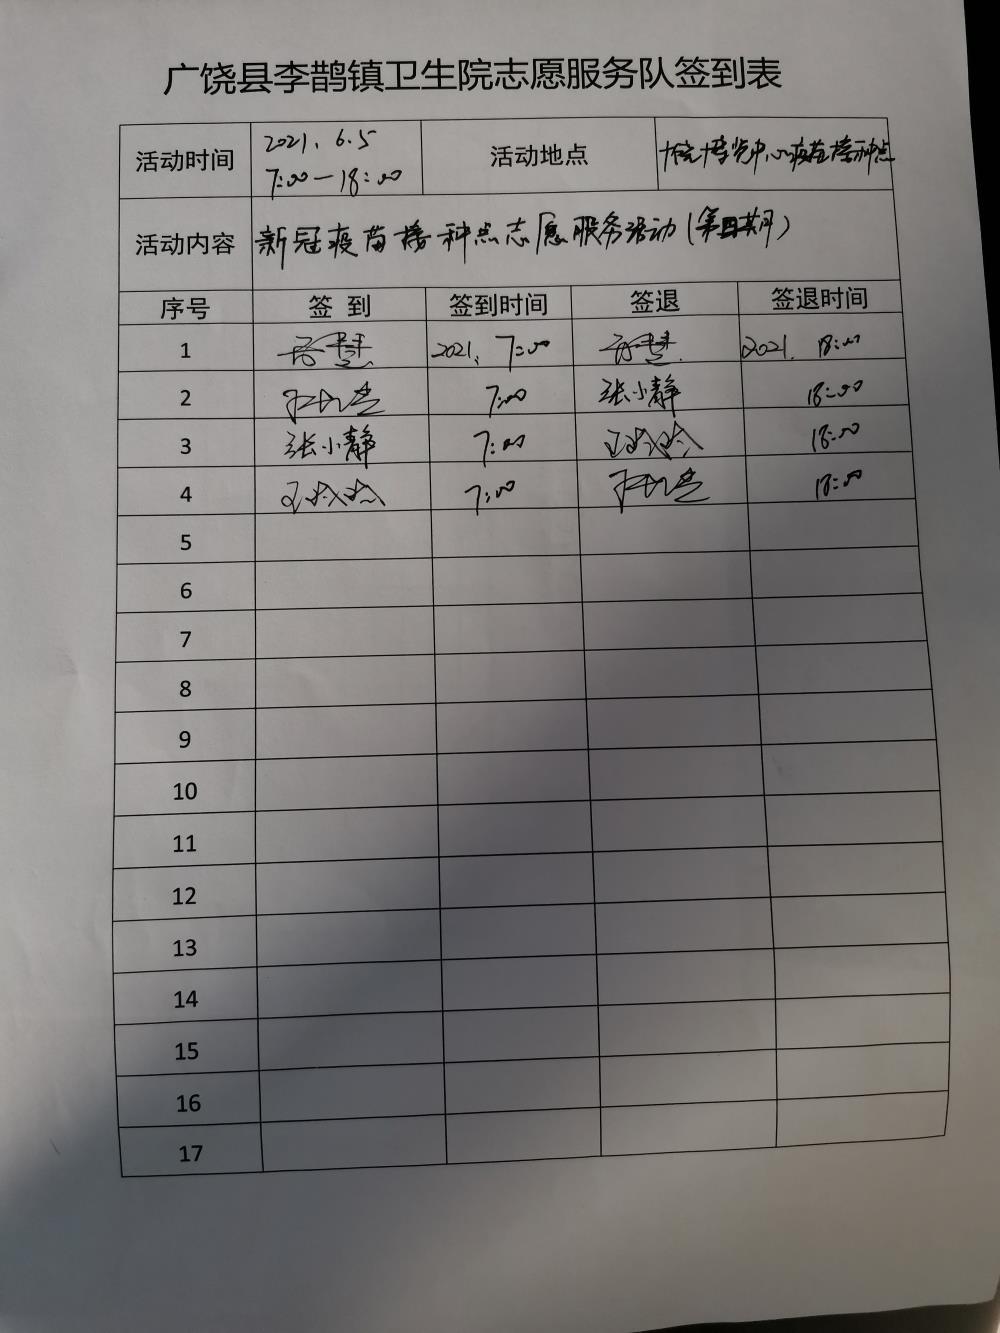 广饶县李鹊镇卫生院志愿服务队签到表
活动时间 2021.6.5 活动地点
7:00—18:00
活动内容 新冠疫苗接种点志愿服务活动(第四期)
序号 签 到 签到时间 签退 签退时间
1 2021. 7:00 2021. 18:00
2 7:00 张小静 18:00
3 张小静 7:00 18:00
4 7:00 18:00
5
6
7
8
9
10
11
12
13
14
15
16
17